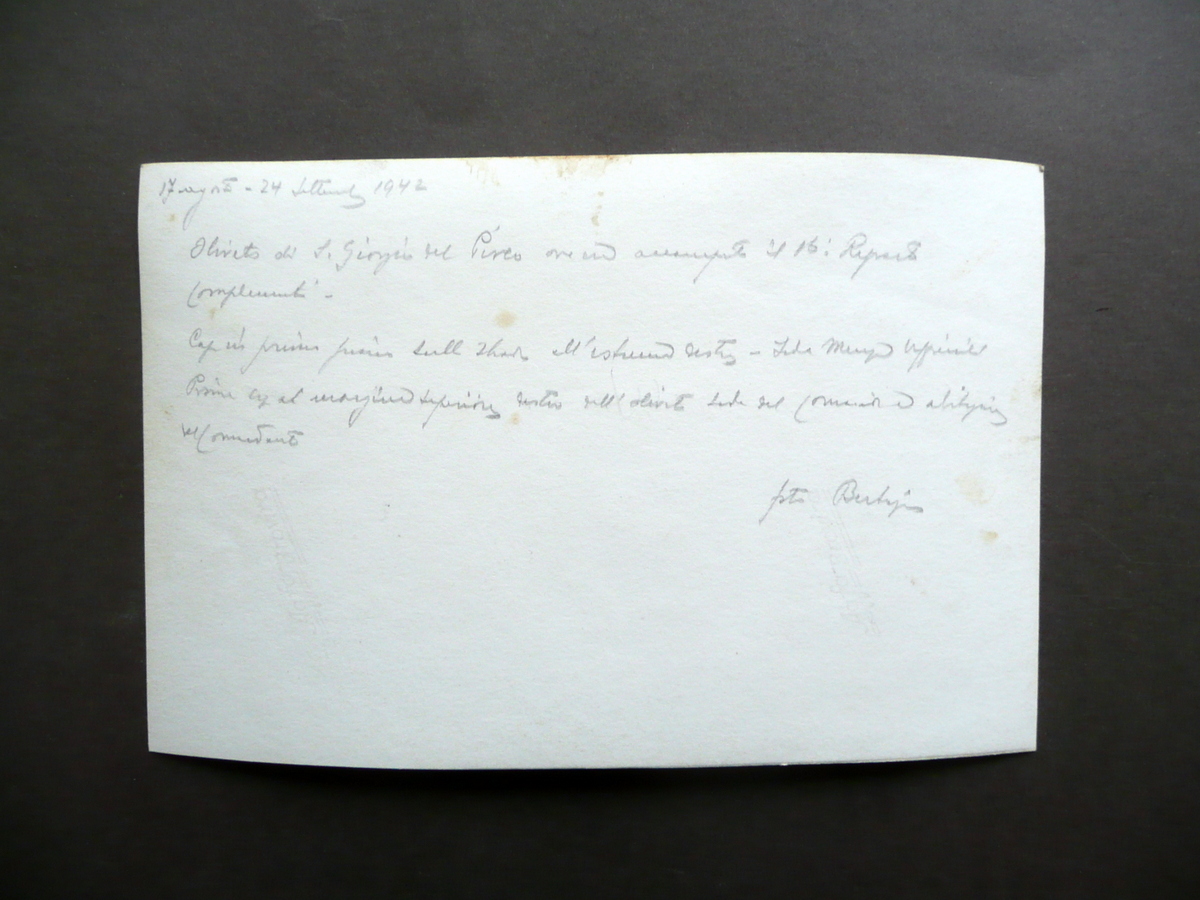 17 agosto - 24 settembre 1942
Oliveto di S. Giorgio del Pireo ove era accampato il 16° Reparto
Complementi -
Casa in primo piano sulla strada all'estrema destra - Sede Mensa Ufficiali
Prima casa al margine superiore destro dell'oliveto sede del Comando ed abitazione
del Comandante
foto